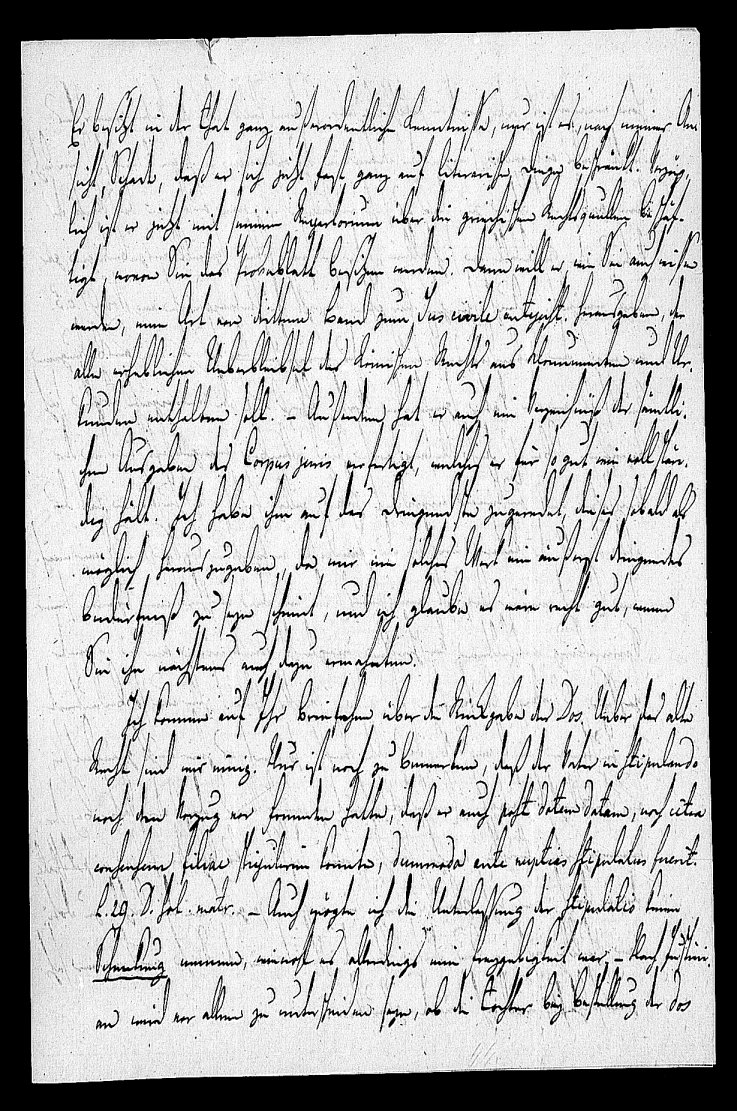 Er besitzt in der That ganz außerordentliche Kenntnisse, nur ist es, nach meiner An-
sicht, Schade, daß er sich jetzt fast ganz auf literarische Dinge beschränkt. Vorzüg-
lich ist er jetzt mit seinem Repertorium über die griechischen Rechtsquellen beschäf-
tigt, wovon Sie das Probeblatt besitzen werden. Dann will er, wie Sie auch wissen
werden, eine Art von drittem Band zum Jus civile antejust. herausgeben, der
alle erheblichen Ueberbleibsel des Römischen Rechts aus Monumenten und Ur-
kunden enthalten soll. – Außerdem hat er auch ein Verzeichniß der sämmtli-
chen Ausgaben des Corpus juris verfertigt, welches er für so gut wie vollstän-
dig hält. Ich habe ihm auf das Dringendste zugeredet, dieses sobald als
möglich herauszugeben, da mir ein solches Werk ein äußerst dringendes
Bedürfniß zu seyn scheint, und ich glaube es wäre recht gut, wenn
Sie ihn nächstens auch dazu ermahnten.
Ich komme auf Ihr Verfahren über die Rückgabe der Dos. Ueber das alte
Recht sind wir einig. Nur ist noch zu bemerken, daß der Vater in stipulando
noch den Vorzug vor Fremden hatte, daß er auch post dotem datam, noch citra
consensum filiae stipuliren konnte, dummodo ante nuptias stipulatus fuerit.
L. 29. D. sol. matr. – Auch mögte ich die Unterlassung der Stipulatio keine
Schenkung nennen, wiewohl es allerdings eine Freygebigkeit war. – Nach Justini-
an wird vor allem zu unterscheiden seyn, ob die Tochter bey Bestellung der Dos